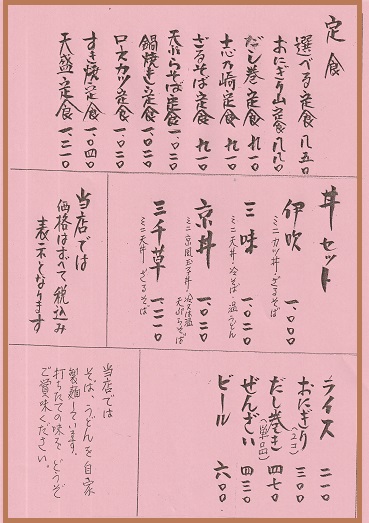 定食
選べる定食 八五〇
おにぎり山定食 八八〇
だし巻定食 九一〇
志乃崎定食 九一〇
ざるそば定食 九一〇
天ぷらそば定食 一、〇二〇
鍋焼き定食 一、〇二〇
ロースカツ定食 一、〇二〇
すき焼定食 一、〇四〇
天盛定食 一、二一〇
丼セット
伊吹 一、〇〇〇
ミニカツ丼・ざるそば
三味 一、〇二〇
ミニ天丼・冷そば・温うどん
京丼 一、〇二〇
ミニ京風玉子丼・冷又は温
天ぷらそば
三千草 一、二一〇
ミニ天丼・ざるそば
当店では
価格はすべて税込み
表示となります
ライス 二一〇
おにぎり(2コ) 三〇〇
だし巻き(単品) 四七〇
ぜんざい 四三〇
ビール 六〇〇
当店では
そば、うどんを自家
製麺しています。
打ちたての味をどうぞ
ご賞味ください。